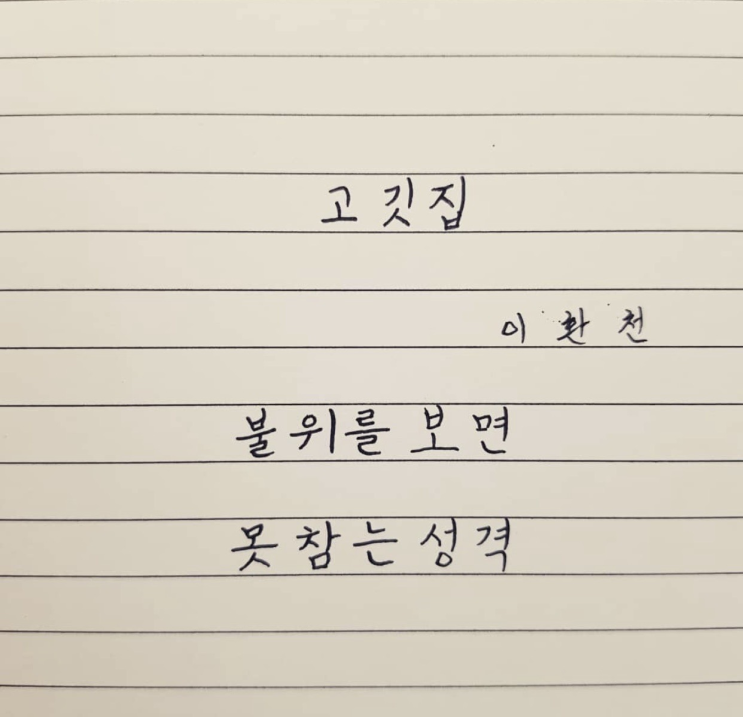 고깃집
이환천
불위를 보면
못참는성격